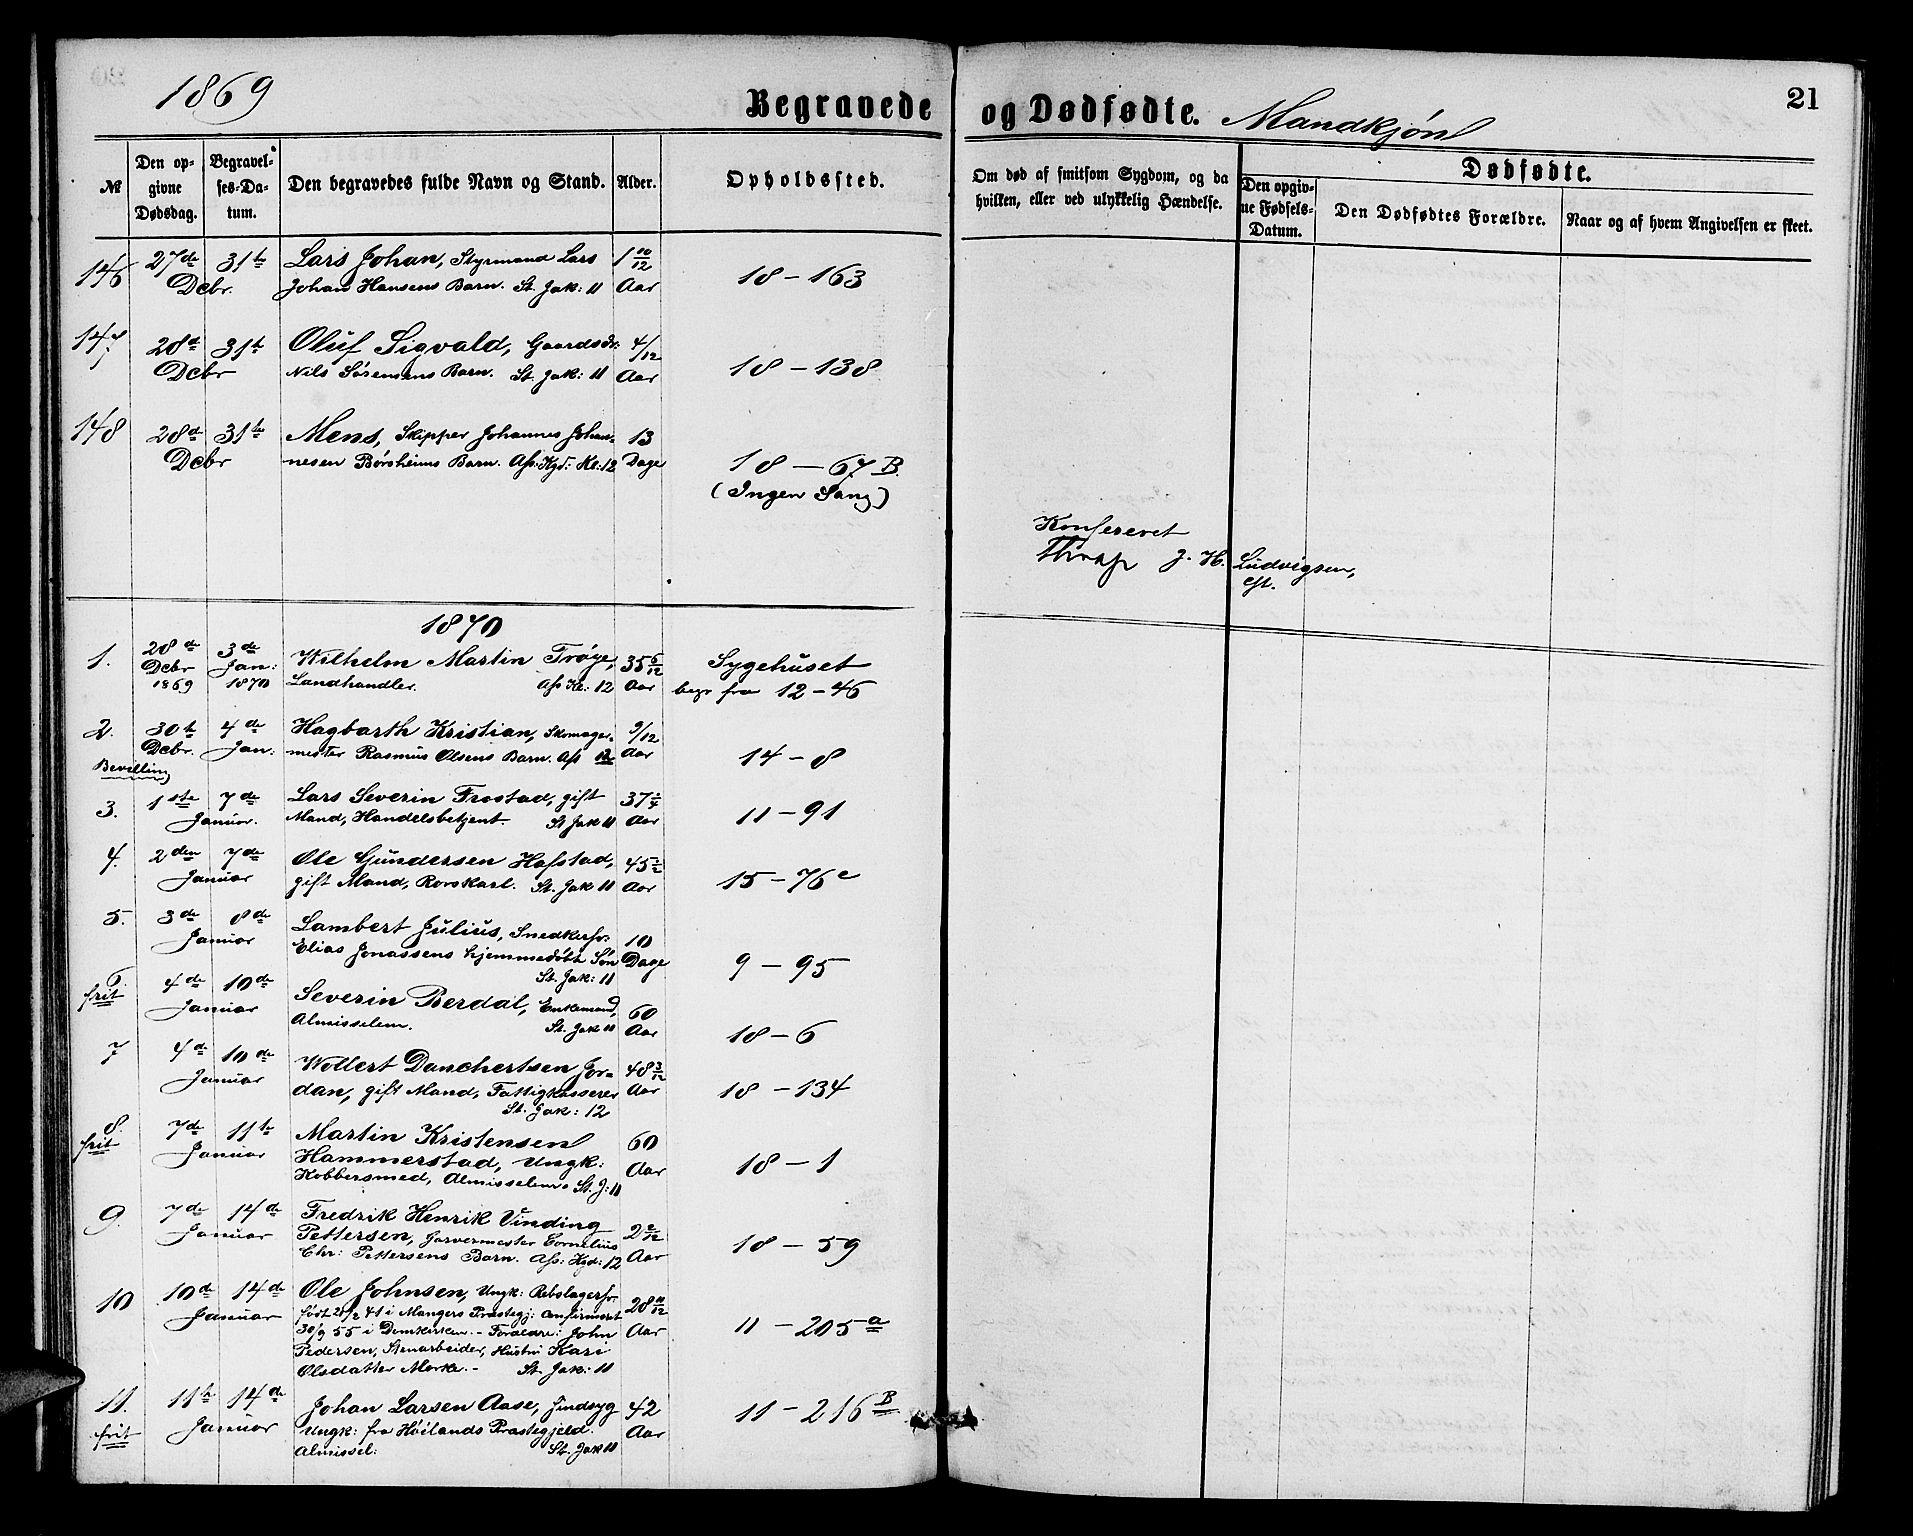 1869 Begravede og Dødfødte. Mandkjøn 21
№
Den opgivne Dødsdag.
Begravelses-Datum.
Den begravedes fulde Navn og Stand.
Alder.
Opholdssted.
Om død af smitsom Sygdom, og da hvilken, eller ved ulykkelig Hændelse.
Dødfødte.
Den opgivne Fødsels-Datum.
Den Dødfødtes Forældre.
Naar og af hvem Angivelsen er skeet.
146 27de 31te Lars Johan, Styrmand Lars 1 10/12 18 - 163
Dcbr. Johan Hansens Barn. St. Jak: 11 Aar
147 28d 31te Oluf Sigvald, Gaardsdr: 4/12 18 - 138
Dcbr Nils Sørensens Barn. St. Jak: 11 Aar
148 28d 31te Mens, Skipper Johannes Johan- 13 18 - 67 B.
Dcbr nesen Børsheims Barn. Ass: Kgd: Kl: 12 Dage
(Ingen Sang)
Konfereret
J. H. Ludvigsen,
cst.
1870
1. 28de 3de Wilhelm Martin Trøye, 35 6/12 Sygehuset
Dcbr Jan: Landhandler. Ass Kl: 12 Aar begr fra 12 - 46
1869 1870
2. 30te 4de Hagbarth Kristian, Skomager- 9/12 14 - 8
Dcbr. Jan: mester Rasmus Olsens Barn. Ass 12 Aar
Bevilling
3. 1ste 7de Lars Severin Frostad, gift 37 11 - 91
Januar. Mand, Handelsbetjent. St Jak 11 Aar
4. 2den 7de Ole Gundersen Hofstad, 45 15 - 76c
Januar gift Mand, Rorskarl. St. Jak 11 Aar
5. 3de 8de Lambert Julius, Snedkersv: 10 9 - 95
Januar Elias Jonassens hjemmedøbt Søn Dage
St. Jak: 11
6. 4de 10de Severin Berdal, Enkemand, 60 18 - 6
frit Januar Almisselem. St. Jak 11 Aar
7 4de 10de Wollert Danchertsen Jor- 48 3/12 18 - 134
Januar dan, gift Mand, Fattigkasserer Aar
St. Jak: 12
8. 7de 11te Martin Kristensen 60 18 - 1
frit Januar Hammerstad, Ungk: Aar
Kobbersmed, Almisselem. St. J: 11
9. 7de 14de Fredrik Henrik Vinding 2 2/12 18 - 59
Januar Pettersen, Farvermester Cornelius Aar
Chr: Pettersens Barn. Ass: Kgd: 12
10 10d 14de Ole Johnsen, Ungk: Rebslagersv: 28 10/12 11 - 205a
Januar født 21/2 41 i Mangers Præstegj: Confirmeret Aar
30/9 55 i Domkirken. - Forældre: John
Pedersen, Stenarbeider, Hustru Kari
Olsdatter Mørke. - St. Jak: 11
11. 11te 14de Johan Larsen Aase, Sindsyg 42 11 - 216 B
frit Januar Ungk: fra Høilands Præstegjeld. Aar
Almissel: St. Jak 11